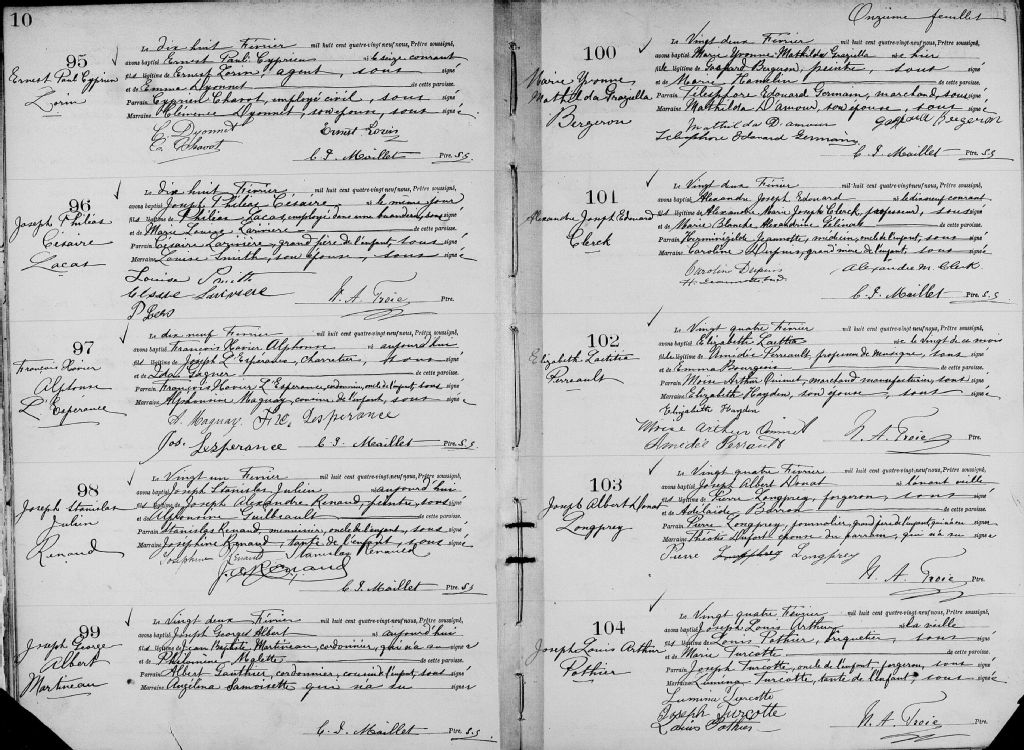 10
95
Ernest Paul Cyprien
Lorin
Le dix huit Février mil huit cent quatre-vingt-neuf nous, Prêtre soussigné,
avons baptisé Ernest Paul Cyprien né le seize courant
fils légitime de Ernest Lorin, agent, sous signé
et de Emma Dyonnet de cette paroisse.
Parrain Cyprien Chavot, employé civil, sous signé
Marraine Clémence Dyonnet, son épouse, sous signée
C Dyonnet
C. Chavot
Ernst Lorin
C. I. Maillet Ptre. S.S
96
Joseph Philéas
Césaire
Lacas
Le dix huit Février mil huit cent quatre-vingt-neuf nous, Prêtre soussigné,
avons baptisé Joseph Philéas Césaire né le même jour
fils légitime de Philéas Lacas, employé dans une buanderie, sous signé
et de Marie Louise Larivière de cette paroisse.
Parrain Césaire Larivière, grand père de l'enfant, sous signé
Marraine Louise Smith, son épouse, sous signée
Louise Smith
Larivière
N. A. Troie Ptre.
97
François Xavier
Alphonse
L'Espérance
Le dix neuf Février mil huit cent quatre-vingt-neuf nous, Prêtre soussigné,
avons baptisé François Xavier Alphonse né aujourd'hui
fils légitime de Joseph L'Espérance, charretier, sous signé
et de Ida Gagner de cette paroisse.
Parrain François Xavier L'Espérance, cordonnier, oncle de l'enfant, sous signé
Marraine Alphonsine Maguay, cousine de l'enfant, sous signée
A. Maguay Lesperance
Jos. Lesperance
C. I. Maillet Ptre. S.S
98
Joseph Stanislas
Julien
Renaud
Le Vingt un Février mil huit cent quatre-vingt-neuf nous, Prêtre soussigné,
avons baptisé Joseph Stanislas Julien né aujourd'hui
fils légitime de Joseph Alexandre Renaud, peintre, sous signé
et de Alphonsine Guilbeault de cette paroisse.
Parrain Stanislas Renaud, menuisier, oncle de l'enfant, sous signé
Marraine Josephine Renaud, tante de l'enfant, sous signée
Josephine Renaud Stanislas Renaud
J. A. Renaud
C. I. Maillet Ptre. S.S
99
Joseph George
Albert
Martineau
Le Vingt deux Février mil huit cent quatre-vingt-neuf nous, Prêtre soussigné,
avons baptisé Joseph Georges Albert né aujourd'hui
fils légitime de Jean Baptiste Martineau, cordonnier, qui n'a su signer
et de Philomène Malette de cette paroisse.
Parrain Albert Gauthier, cordonnier, cousin de l'enfant, sous signé
Marraine Angelina Samoisette qui n'a su signer
C. I. Maillet Ptre. S.S
Onzième feuillet
100
Marie Yvonne
Mathilda Graziella
Bergeron
Le Vingt deux Février mil huit cent quatre-vingt-neuf nous, Prêtre soussigné,
avons baptisé Marie Yvonne Mathilda Graziella née hier
fille légitime de Gaspard Bergeron, peintre, sous signé
et de Marie Hamelin de cette paroisse.
Parrain Télesphore Edouard Germain, marchand, sous signé
Marraine Mathilda D'amour, son épouse, sous signée
Mathilda D. amour gaspard Bergeron
Telesphore Edouard Germain
C. I. Maillet Ptre. S.S
101
Alexandre Joseph Edouard
Clerk
Le Vingt deux Février mil huit cent quatre-vingt-neuf nous, Prêtre soussigné,
avons baptisé Alexandre Joseph Edouard né le dixneuf courant
fils légitime de Alexandre Marie Joseph Clerk, professeur, sous signé
et de Marie Blanche Alexandrine Gélinas de cette paroisse.
Parrain Herménégilde Jeannotte, médecin, oncle de l'enfant, sous signé
Marraine Caroline Dupuis, grand'mère de l'enfant, sous signée
Caroline Dupuis Alexandre M. Clerk
H. Jeannotte
C. I. Maillet Ptre. S.S.
102
Elizabeth Laetitia
Perreault
Le Vingt quatre Février mil huit cent quatre-vingt-neuf nous, Prêtre soussigné,
avons baptisé Elizabeth Laetitia née le vingt de ce mois
fille légitime de Amédée Perreault, professeur de musique, sous signé
et de Emma Bourgeois de cette paroisse.
Parrain Moïse Arthur Ouimet, marchand manufacturier, sous signé
Marraine Elizabeth Hayden, son épouse, sous signée
Elizabeth Hayden
Moïse Arthur Ouimet
Amédée Perrault
N. A. Troie Ptre.
103
Joseph Albert Donat
Longprey
Le Vingt quatre Février mil huit cent quatre-vingt-neuf nous, Prêtre soussigné,
avons baptisé Joseph Albert Donat né l'avant veille
fils légitime de Pierre Longprey, forgeron, sous signé
et de Adelaide Baron de cette paroisse.
Parrain Pierre Longprey, journalier, grand père de l'enfant qui n'a su signer
Marraine Dufort épouse du parrain, qui n'a su signer
Pierre Longprey
N. A. Troie Ptre.
104
Joseph Louis Arthur
Pothier
Le Vingt quatre Février mil huit cent quatre-vingt-neuf nous, Prêtre soussigné,
avons baptisé Joseph Louis Arthur né la veille
fils légitime de Louis Pothier, briquetier, sous signé
et de Marie Turcotte de cette paroisse.
Parrain Joseph Turcotte, oncle de l'enfant, forgeron, sous signé
Marraine Lumina Turcotte, tante de l'enfant, sous signée
Lumina Turcotte
Joseph Turcotte
Louis Pothier
N. A. Troie Ptre.